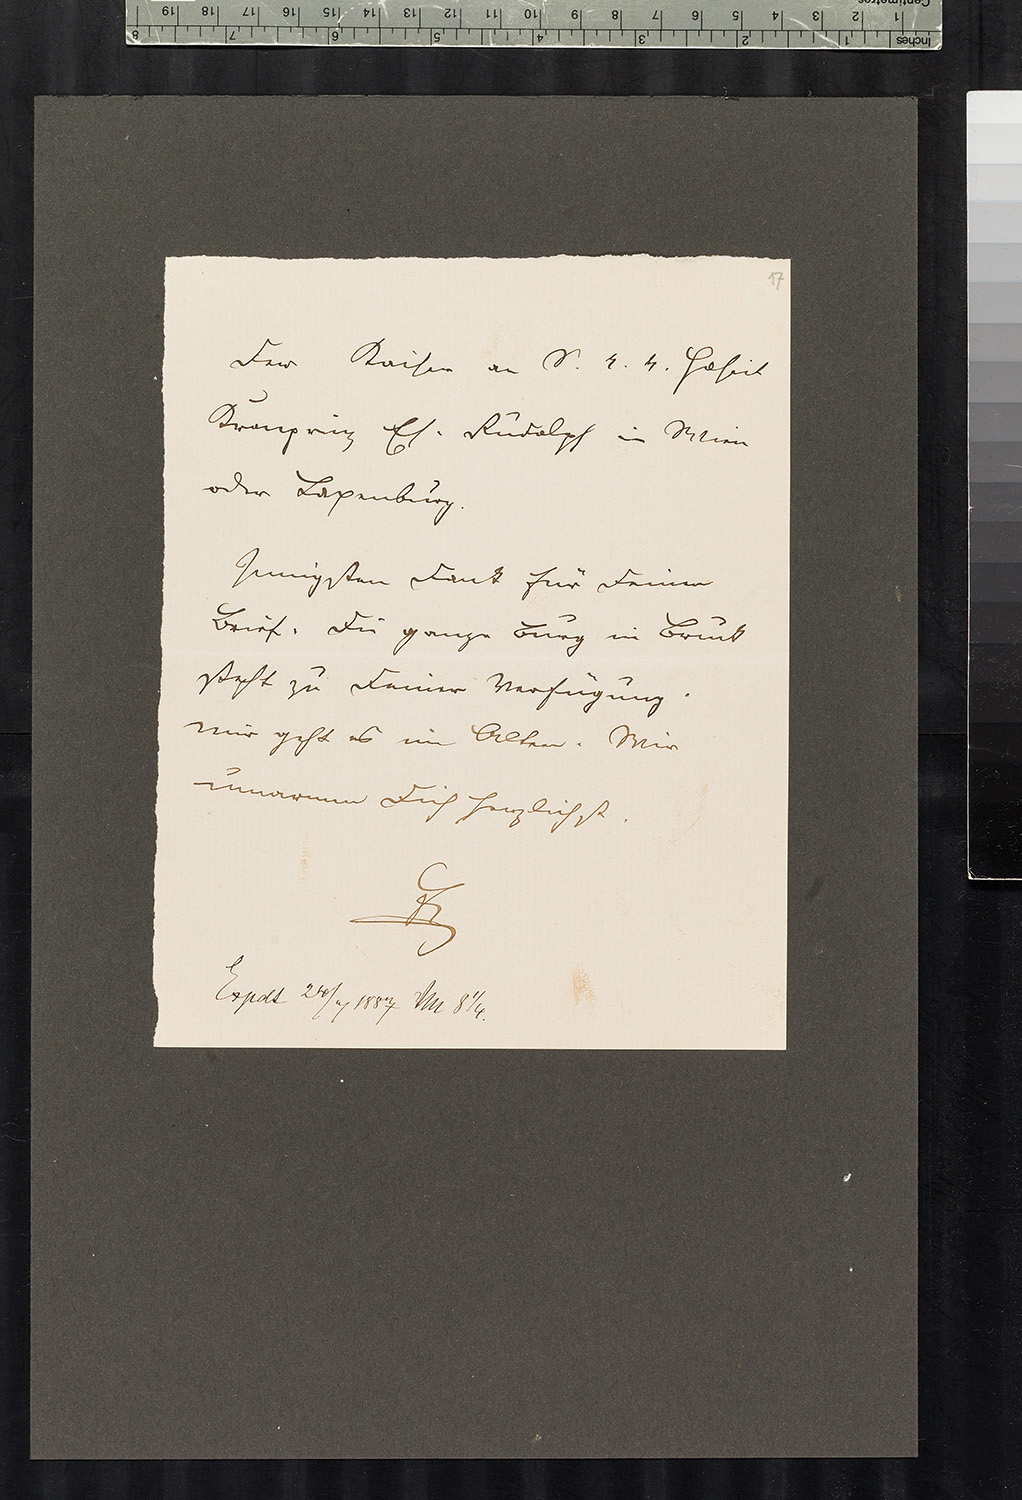 17
Der Kaiser an S. k. k. Hoheit
Kronprinz Eh. Rudolph in Wien
oder Laxenburg.
Innigsten Dank für Deinen
Brief. Die ganze Burg in Bruck
steht zu Deiner Verfügung.
Mir geht es im Alten. Wir
umarmen Dich herzlichst.
Expdt 1887 8 1/4.
Inches 1 2 3 4 5 6 7 8
Centimetres 1 2 3 4 5 6 7 8 9 10 11 12 13 14 15 16 17 18 19